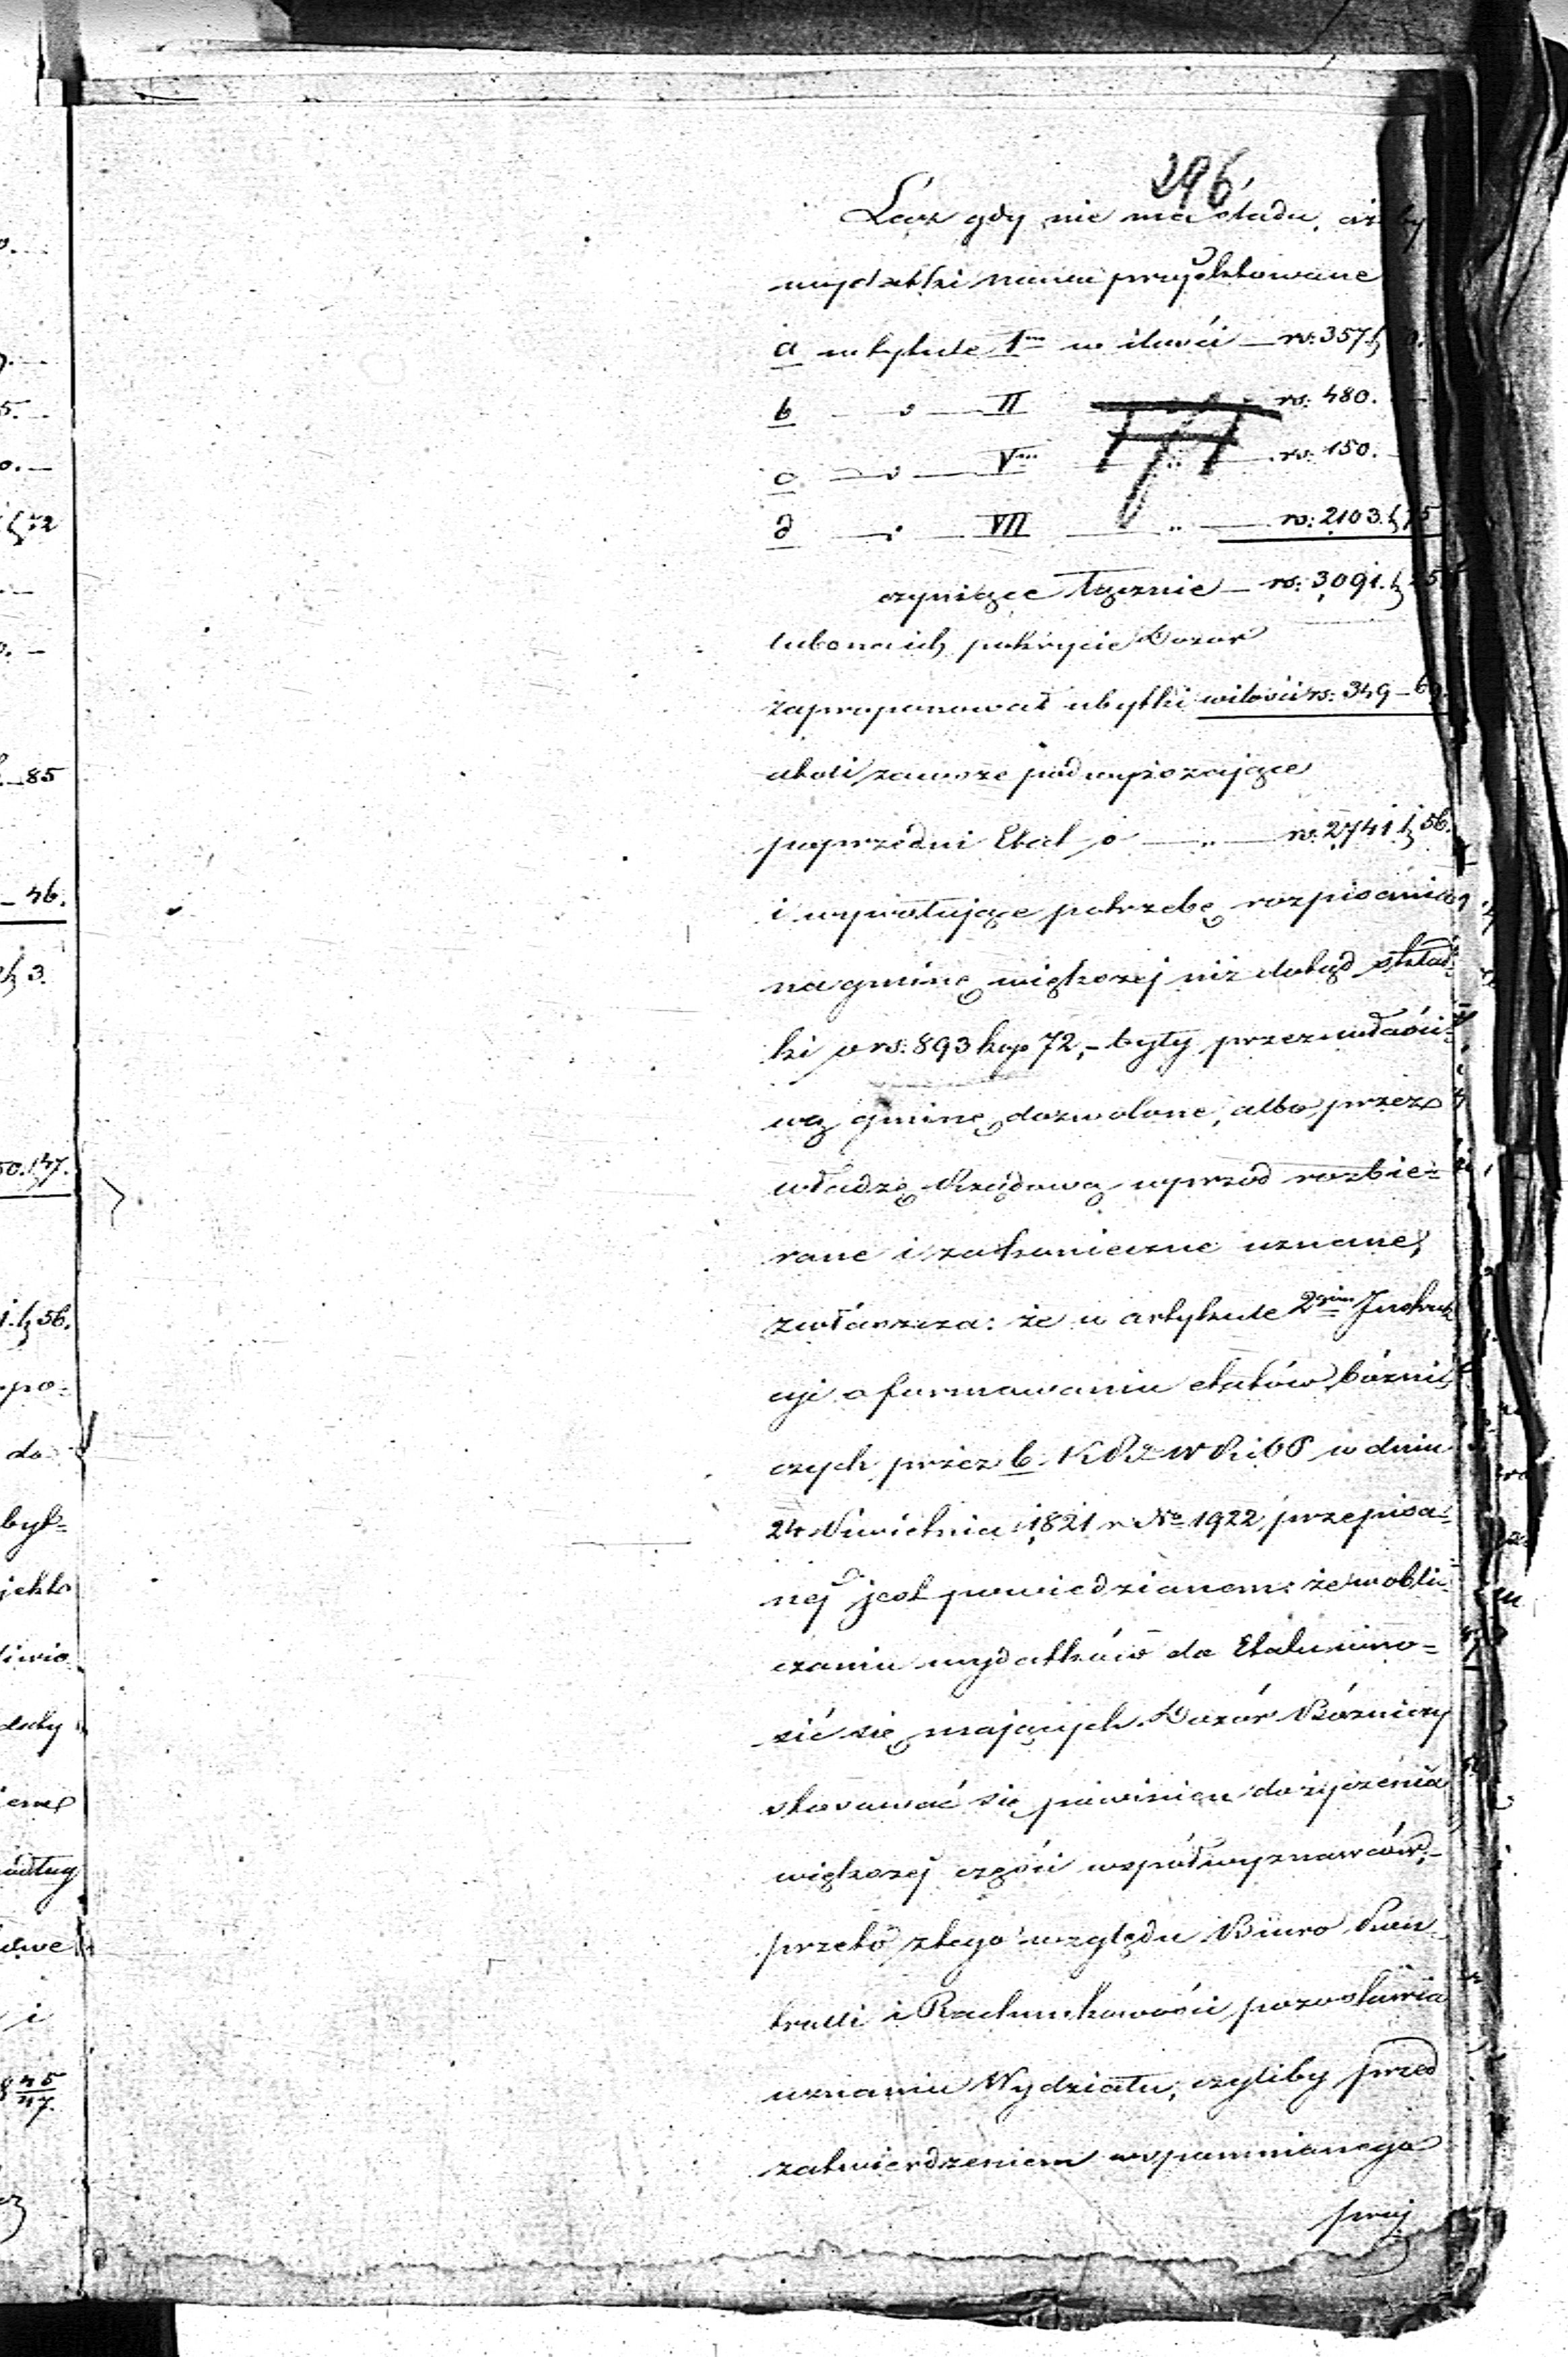 296
Lecz gdy nie ma śladu, ażeby
wydatki nowo projektowane
a w tytule 1m w ilości — rs: 357 k
b — „ — II — rs. 480.
c — „ — Vm „ — rs. 150.
d — „ — VII — „ — rs: 2103. k 75
czyniące łącznie — rs: 3091. k 25
lubo na ich pokrycie Dozor
zaproponował ubytki w ilości rs: 349 – 69.
atoli zawsze podwyższające
poprzedni Etat o — „ — rs. 2741. k 56.
i wywołujące potrzebę rozpisania
na gminę większej niż dotąd skład-
ki o rs: 893 kop 72, – były przez właści-
wą gminę dozwolone, albo przez
władzę Rządową wprzód rozbie-
rane i za konieczne uznane,
zwłaszcza: że w artykule 2gim Instruk
cyi o formowaniu etatów bóżni-
czych przez b. KRz W R i OP w dniu
24 Kwietnia 1821 r No 1922 przepisa-
nej jest powiedzianem: że w obli-
czaniu wydatków do Etatu wno-
sić się mających Dozór Bóżniczy
stosować się powinien do życzenia
większej części współwyznawców, –
przeto z tego względu Biuro Kon-
trolli i Rachunkowości pozostawia
uznaniu Wydziału, czyliby przed
zatwierdzeniem wspomnianego
proj
0.
5.
0. —
k 72
85
46.
k 3.
50. k 47.
1. k 56.
po-
do
był-
jekto
i
45
47.